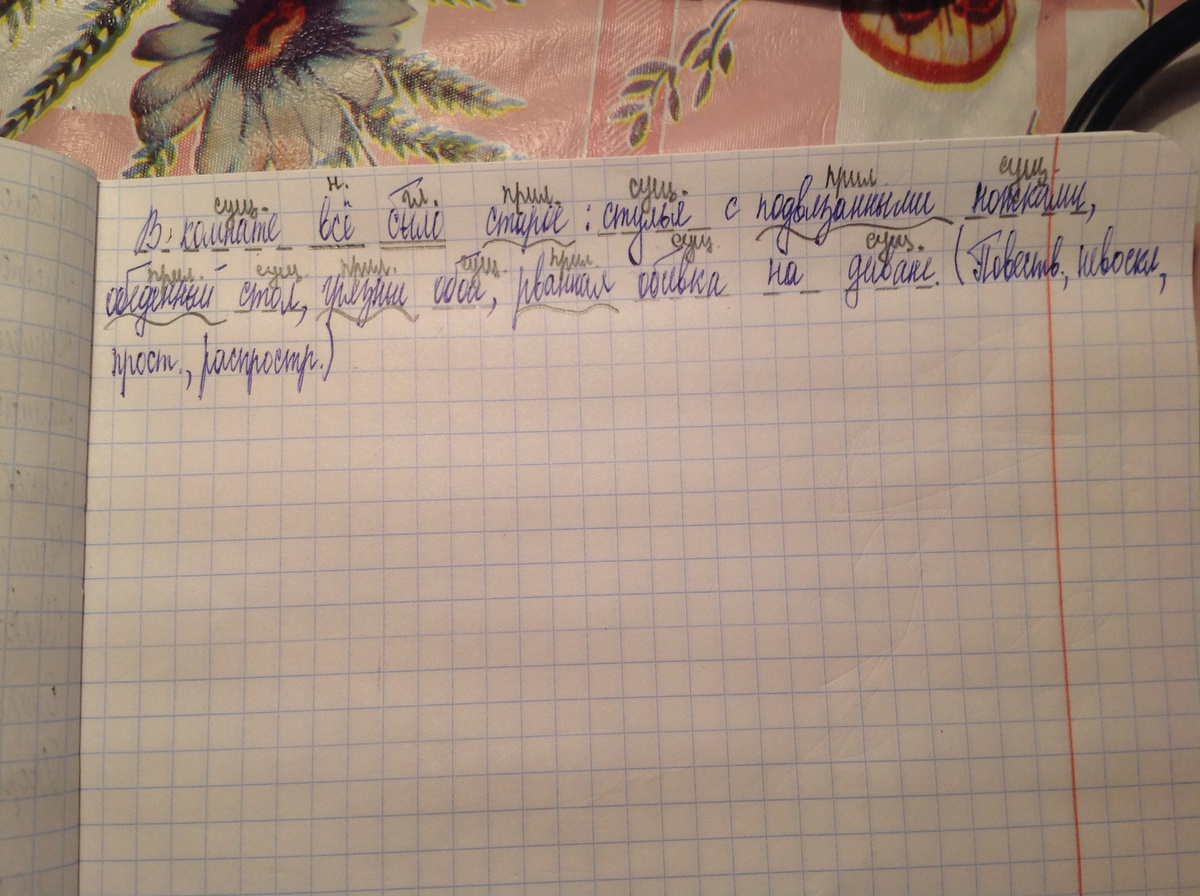 сущ. н. гл. прил. сущ. прил сущ.
В комнате всё было старое: стулья с подвязанными ножками,
прил. сущ. прил. сущ. прил сущ сущ.
обеденный стол, грязные обои, рванная обивка на диване. (Повеств., невоскл.,
прост., распростр.)